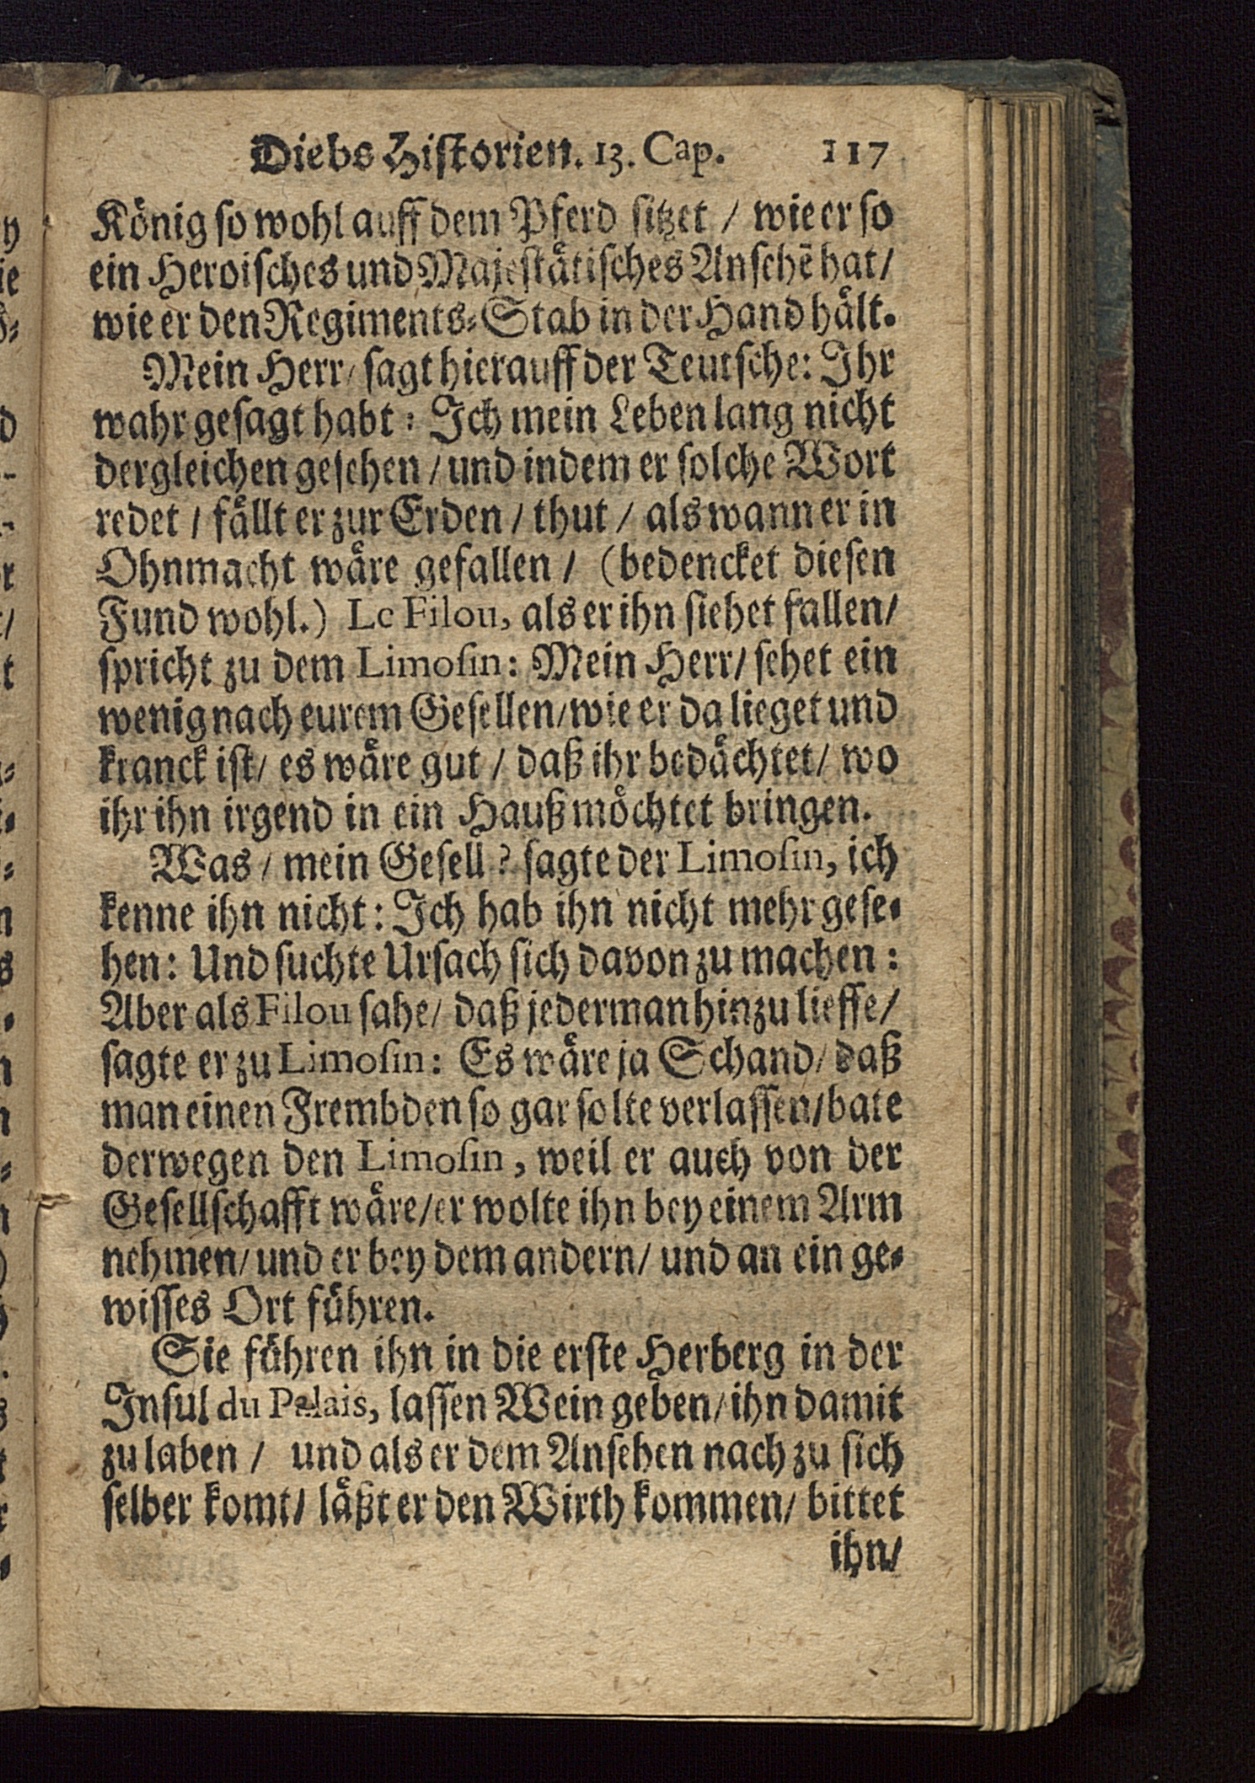 Diebs Historien. 13. Cap. 117
König so wohl auff dem Pferd sitzet / wie er so
ein Heroisches und Majestätisches Ansehē hat/
wie er den Regiments-Stab in der Hand hält.
Mein Herr/ sagt hierauff der Teutsche: Ihr
wahr gesagt habt: Ich mein Leben lang nicht
dergleichen gesehen / und indem er solche Wort
redet / fällt er zur Erden / thut / als wann er in
Ohnmacht wäre gefallen / (bedencket diesen
Fund wohl.) Le Filou, als er ihn siehet fallen/
spricht zu dem Limosin: Mein Herr/ sehet ein
wenig nach eurem Gesellen/wie er da lieget und
kranck ist/ es wäre gut / daß ihr bedächtet/ wo
ihr ihn irgend in ein Hauß möchtet bringen.
Was / mein Gesell? sagte der Limosin, ich
kenne ihn nicht: Ich hab ihn nicht mehr gese-
hen: Und suchte Ursach sich davon zu machen:
Aber als Filou sahe/ daß jederman hinzu lieffe/
sagte er zu Limosin: Es wäre ja Schand/ daß
man einen Frembden so gar solte verlassen/bate
derwegen den Limosin, weil er auch von der
Gesellschafft wäre/er wolte ihn bey einem Arm
nehmen/ und er bey dem andern/ und an ein ge-
wisses Ort führen.
Sie führen ihn in die erste Herberg in der
Insul du Palais, lassen Wein geben/ ihn damit
zu laben / und als er dem Ansehen nach zu sich
selber komt/ läßt er den Wirth kommen/ bittet
ihn/